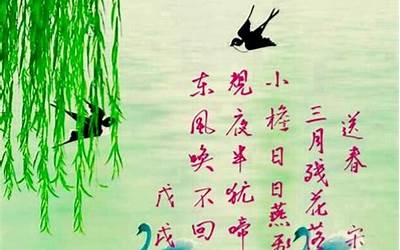 送春 宋
三月残花落
小檐日日燕
規夜半犹啼
东风唤不回
戊戌